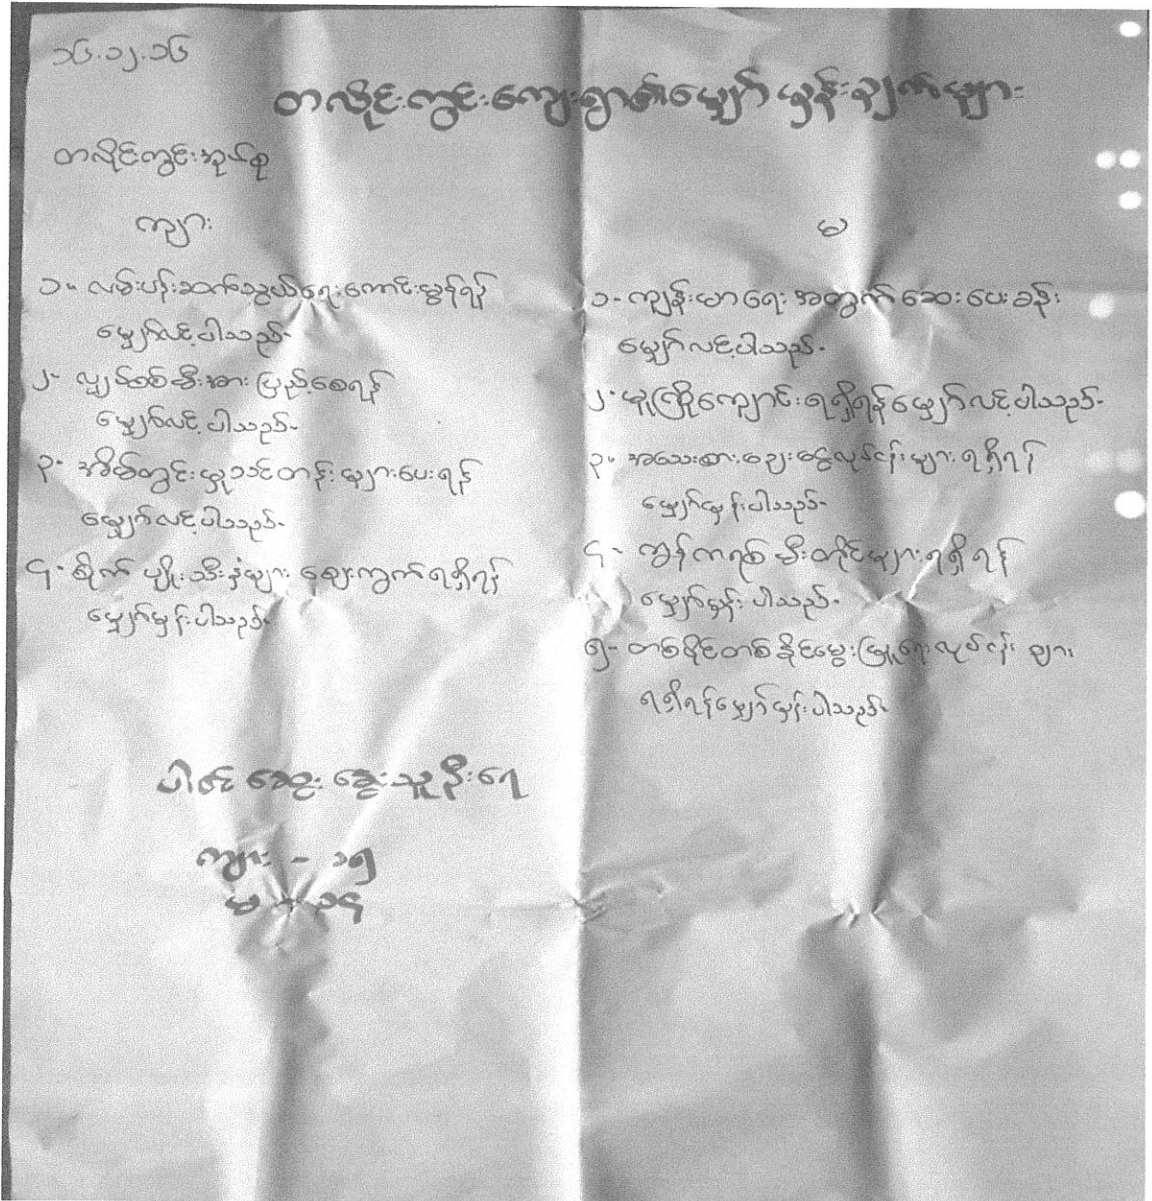 ၁၆.၁၂.၁၆
တလိုင်းကွင်းကျေးရွာ၏မျှော်မှန်းချက်များ
တလိုင်ကွင်းအုပ်စု
ကျား
၁။ လမ်းပန်းဆက်သွယ်ရေးကောင်းမွန်ရန်
မျှော်လင့်ပါသည်-
၂- လျှပ်စစ်မီးအား ပြည့်စေရန်
မျှော်လင့်ပါသည်-
၃- အိမ်တွင်းမှုသင်တန်းများပေးရန်
မျှော်လင့်ပါသည်-
၄- စိုက်ပျိုးသီးနှံများ ဈေးကွက်ရရှိရန်
မျှော်မှန်းပါသည်-
မ
၁- ကျန်းမာရေးအတွက် ဆေးပေးခန်း
မျှော်လင့်ပါသည်-
၂- မူကြိုကျောင်းရရှိရန်မျှော်လင့်ပါသည်-
၃- အသေးစားချေးငွေလုပ်ငန်းများရရှိရန်
မျှော်မှန်းပါသည်-
၄- ကွန်ကရစ်မီးတိုင်များရရှိရန်
မျှော်မှန်းပါသည်-
၅- တစ်ပိုင်တစ်နိုင်မွေးမြူရေးလုပ်ငန်းများ
ရရှိရန်မျှော်မှန်းပါသည်-
ပါဝင်ဆွေးနွေးသူဦးရေ
ကျား - ၁၅
မ - ၁၄